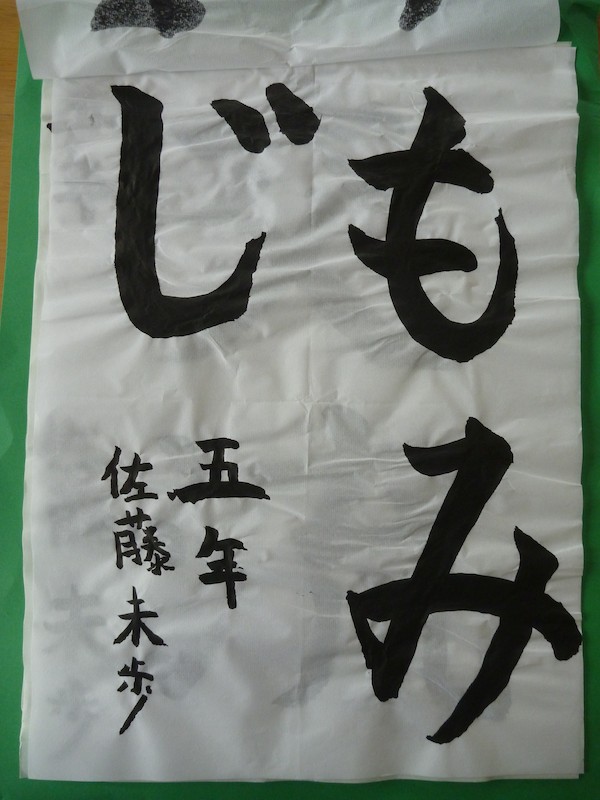 もみ
じ
五年
佐藤未歩